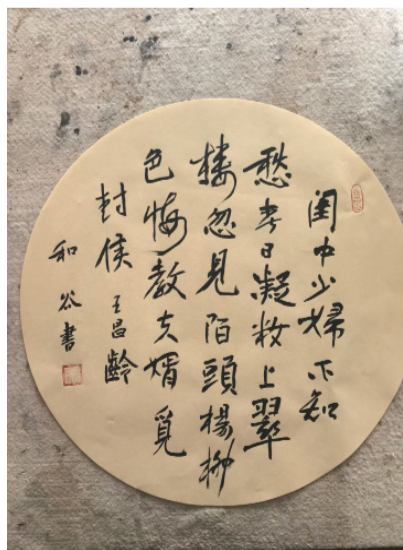 闺中少婦不知
愁春日凝妝上翠
楼忽見陌頭楊柳
色悔教夫婿覓
封侯 王昌齡
和谷書